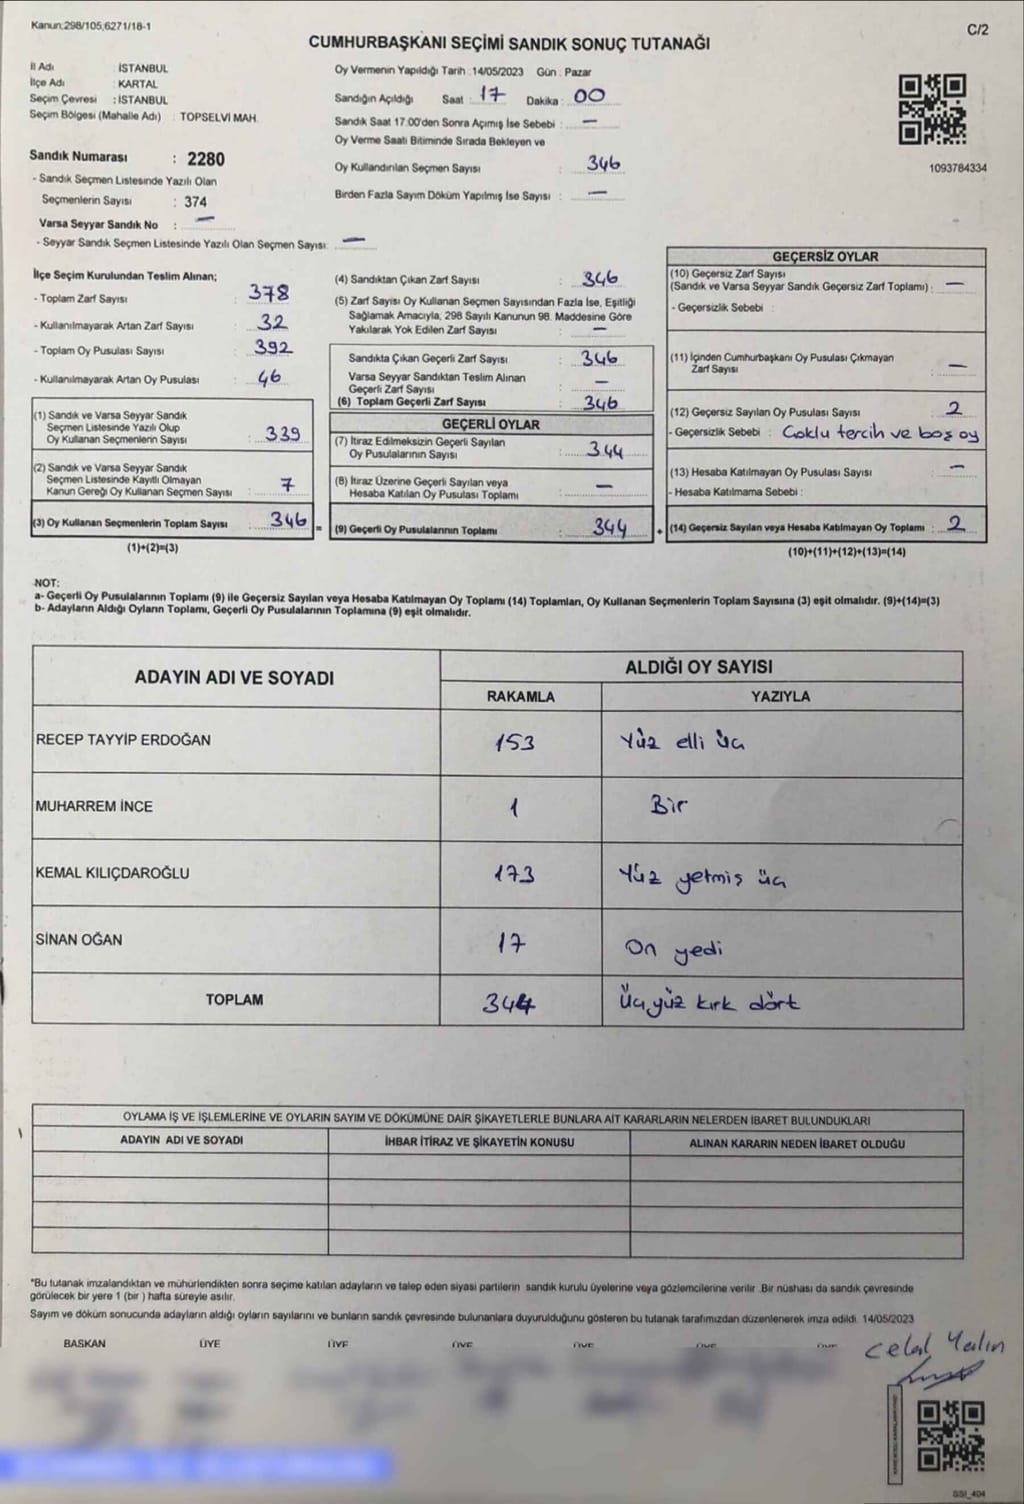 Kanun:298/105,6271/18-1
C/2
CUMHURBAŞKANI SEÇİMİ SANDIK SONUÇ TUTANAĞI
İl Adı : İSTANBUL
İlçe Adı : KARTAL
Seçim Çevresi : İSTANBUL
Seçim Bölgesi (Mahalle Adı) : TOPSELVİ MAH.
Sandık Numarası : 2280
- Sandık Seçmen Listesinde Yazılı Olan
Seçmenlerin Sayısı : 374
Varsa Seyyar Sandık No : —
- Seyyar Sandık Seçmen Listesinde Yazılı Olan Seçmen Sayısı: —
Oy Vermenin Yapıldığı Tarih : 14/05/2023 Gün : Pazar
Sandığın Açıldığı Saat : 17 Dakika : 00
Sandık Saat 17.00'den Sonra Açımış İse Sebebi : —
Oy Verme Saati Bitiminde Sırada Bekleyen ve
Oy Kullandırılan Seçmen Sayısı : 346
Birden Fazla Sayım Döküm Yapılmış İse Sayısı : —
1093784334
İlçe Seçim Kurulundan Teslim Alınan;
- Toplam Zarf Sayısı : 378
- Kullanılmayarak Artan Zarf Sayısı : 32
- Toplam Oy Pusulası Sayısı : 392
- Kullanılmayarak Artan Oy Pusulası : 46
(1) Sandık ve Varsa Seyyar Sandık
Seçmen Listesinde Yazılı Olup
Oy Kullanan Seçmenlerin Sayısı : 339
(2) Sandık ve Varsa Seyyar Sandık
Seçmen Listesinde Kayıtlı Olmayan
Kanun Gereği Oy Kullanan Seçmen Sayısı : 7
(3) Oy Kullanan Seçmenlerin Toplam Sayısı : 346 =
(1)+(2)=(3)
(4) Sandıktan Çıkan Zarf Sayısı : 346
(5) Zarf Sayısı Oy Kullanan Seçmen Sayısından Fazla İse, Eşitliği
Sağlamak Amacıyla, 298 Sayılı Kanunun 98. Maddesine Göre
Yakılarak Yok Edilen Zarf Sayısı : —
Sandıkta Çıkan Geçerli Zarf Sayısı : 346
Varsa Seyyar Sandıktan Teslim Alınan
Geçerli Zarf Sayısı : —
(6) Toplam Geçerli Zarf Sayısı : 346
GEÇERLİ OYLAR
(7) İtiraz Edilmeksizin Geçerli Sayılan
Oy Pusulalarının Sayısı : 344
(8) İtiraz Üzerine Geçerli Sayılan veya
Hesaba Katılan Oy Pusulası Toplamı : —
(9) Geçerli Oy Pusulalarının Toplamı : 344 +
GEÇERSİZ OYLAR
(10) Geçersiz Zarf Sayısı
(Sandık ve Varsa Seyyar Sandık Geçersiz Zarf Toplamı) : —
- Geçersizlik Sebebi :
(11) İçinden Cumhurbaşkanı Oy Pusulası Çıkmayan
Zarf Sayısı : —
(12) Geçersiz Sayılan Oy Pusulası Sayısı : 2
- Geçersizlik Sebebi : Çoklu tercih ve boş oy
(13) Hesaba Katılmayan Oy Pusulası Sayısı : —
- Hesaba Katılmama Sebebi :
(14) Geçersiz Sayılan veya Hesaba Katılmayan Oy Toplamı : 2
(10)+(11)+(12)+(13)=(14)
NOT:
a- Geçerli Oy Pusulalarının Toplamı (9) ile Geçersiz Sayılan veya Hesaba Katılmayan Oy Toplamı (14) Toplamları, Oy Kullanan Seçmenlerin Toplam Sayısına (3) eşit olmalıdır. (9)+(14)=(3)
b- Adayların Aldığı Oyların Toplamı, Geçerli Oy Pusulalarının Toplamına (9) eşit olmalıdır.
ADAYIN ADI VE SOYADI ALDIĞI OY SAYISI
RAKAMLA YAZIYLA
RECEP TAYYİP ERDOĞAN 153 Yüz elli üç
MUHARREM İNCE 1 Bir
KEMAL KILIÇDAROĞLU 173 Yüz yetmiş üç
SİNAN OĞAN 17 On yedi
TOPLAM 344 Üçyüz kırk dört
OYLAMA İŞ VE İŞLEMLERİNE VE OYLARIN SAYIM VE DÖKÜMÜNE DAİR ŞİKAYETLERLE BUNLARA AİT KARARLARIN NELERDEN İBARET BULUNDUKLARI
ADAYIN ADI VE SOYADI İHBAR İTİRAZ VE ŞİKAYETİN KONUSU ALINAN KARARIN NEDEN İBARET OLDUĞU
*Bu tutanak imzalandıktan ve mühürlendikten sonra seçime katılan adayların ve talep eden siyasi partilerin sandık kurulu üyelerine veya gözlemcilerine verilir. Bir nüshası da sandık çevresinde
görülecek bir yere 1 (bir ) hafta süreyle asılır.
Sayım ve döküm sonucunda adayların aldığı oyların sayılarını ve bunların sandık çevresinde bulunanlara duyurulduğunu gösteren bu tutanak tarafımızdan düzenlenerek imza edildi. 14/05/2023
BAŞKAN ÜYE ÜYE ÜYE ÜYE ÜYE ÜYE
Celal Yalın
SSI_404